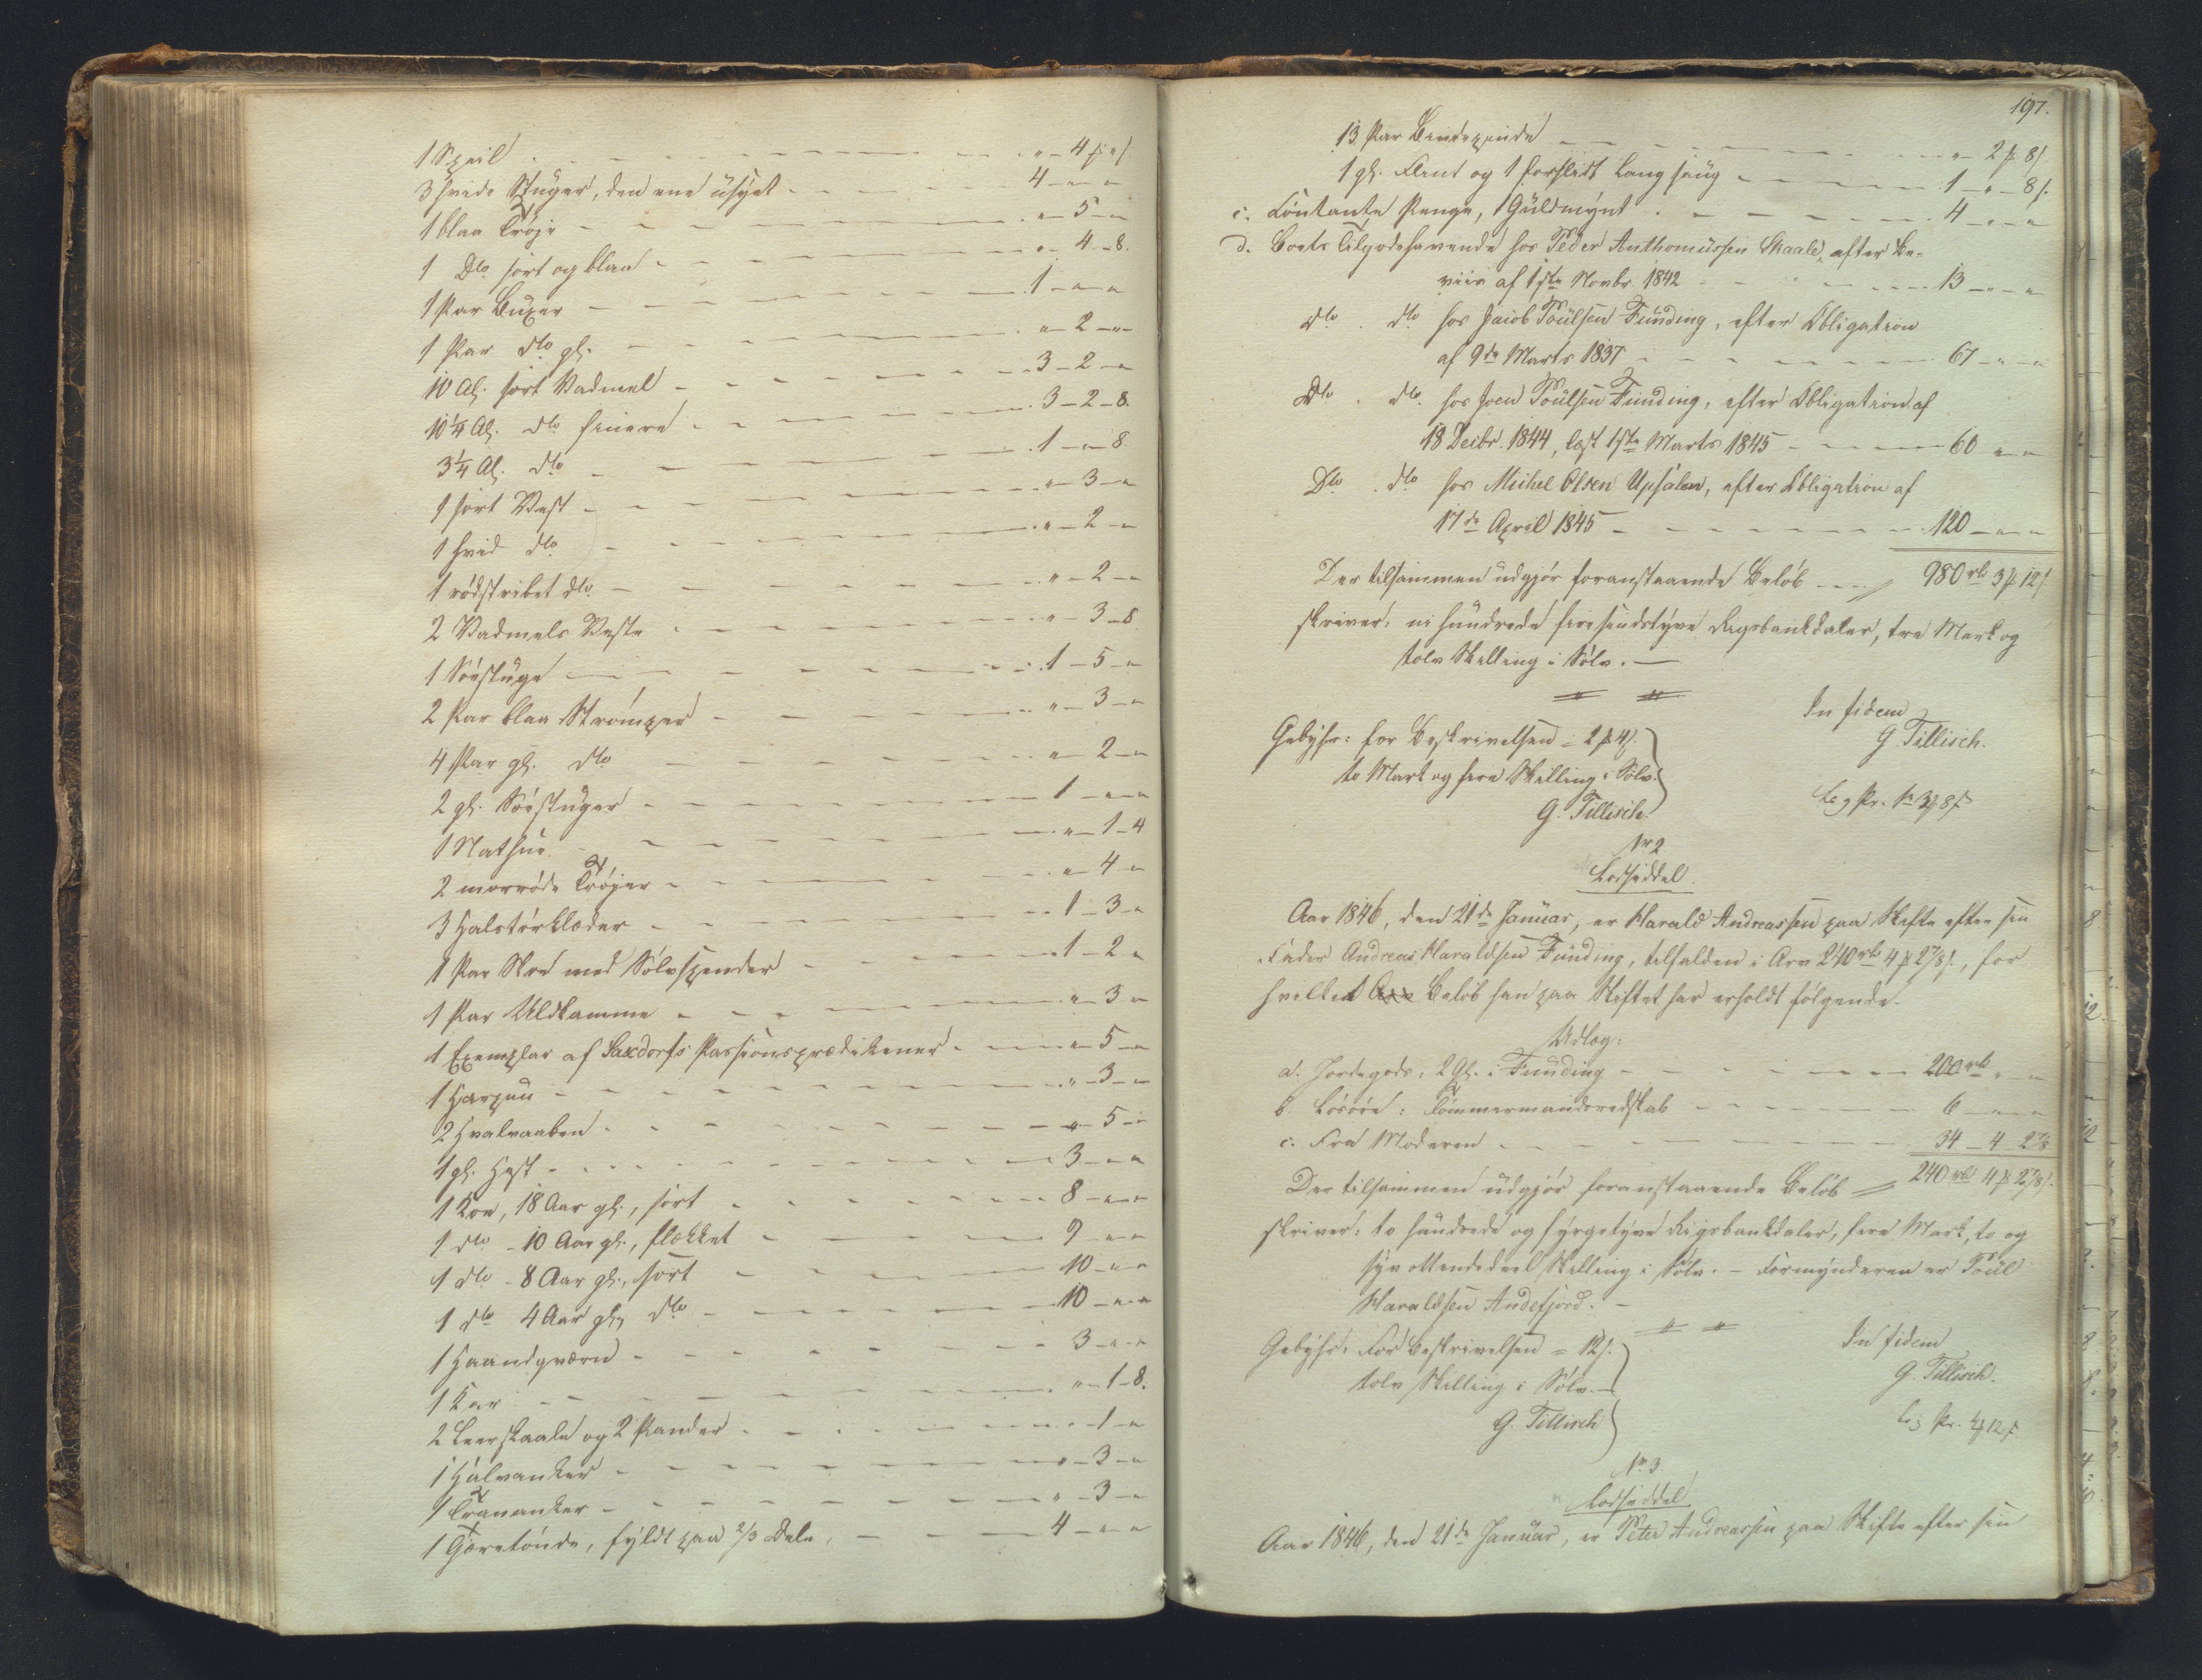 1 Speil - - - " - 4 ß " s
3 hvide Stuger, den ene usyet - - - 4 - " - "
1 blaa Trøje - - - " - 5 - "
1 Dto sort og blaa - - - " - 4 - 8.
1 Par Buxer - - - 1 - " - "
1 Par dto gl. - - - " - 2 - "
10 Al. sort Vadmel - - - 3 - 2 - "
10 1/4 Al. dto finere - - - 3 - 2 - 8.
3 1/4 Al. dto - - - 1 - " - 8
1 sort Vest - - - " - 3 - "
1 hvid dto - - - " - 2 - "
1 rødstribet dto - - - " - 2 - "
2 Vadmels Veste - - - " - 3 - 8
1 Søstuge - - - 1 - 5 - "
2 Par blaa Strømper - - - " - 3 - "
4 Par gl. dto - - - " - 2 - "
2 gl. Søstuger - - - 1 - " - "
1 Nathue - - - " - 1 - 4
2 morrøde Trøjer - - - " - 4 - "
3 Halstørklæder - - - 1 - 3 - "
1 Par Skoe med Sølvspender - - - 1 - 2 - "
1 Par Uldkamme - - - " - 3 - "
1 Exemplar af Saxdorfs Passionsprædikener - - - " - 5 - "
1 Harpun - - - " - 3 - "
2 Hvalvaaben - - - " - 5 - "
1 gl. Hest - - - 3 - " - "
1 Koe, 18 Aar gl., sort - - - 8 - " - "
1 dto - 10 Aar gl., flækket - - - 9 - " - "
1 dto - 8 Aar gl., sort - - - 10 - " - "
1 dto 4 Aar gl., dto - - - 10 - " - "
1 Haandqværn - - - 3 - " - "
1 Kar - - - " - 1 - 8.
2 Leerskaale og 2 Pander - - - " - 1 - "
1 Halvanker - - - " - 3 - "
1 Trananker - - - " - 3 - "
1 Gjæretønde, fyldt paa 2/3 Dele, - - - 4 - " - "
197.
13 Par - - - " - 2 ß 8 s
1 gl. Flint og 1 forslidt Langsaug - - - 1 - " - 8 s.
c. Contante Penge, 1 Guldmynt - - - 4 - " - "
d. Boets Tilgodehavende hos Peder Anthoniussen Skaale, efter Be-
viis af 1ste Novbr. 1842 - - - 13 - " - "
dto. dto hos Jacob Poulsen Funding, efter Obligation
af 9de Marts 1837 - - - 67 - " - "
Dto. dto. hos Joen Poulsen Funding, efter Obligation af
18 Decbr. 1844, læst 1ste Marts 1845 - - - 60 " - "
Dto. dto hos Michel Olsen Upsalen, efter Obligation af
17de April 1845 - - - 120 - " - "
Der tilsammen udgjør foranstaaende Beløb - - - 980 rb 3 ß 12 s
skriver: ni hundrede firesindstyve Rigsbankdaler, tre Mark og
tolv Skilling i Sølv. -
In fidem
G. Tillisch.
Gebyhr: for Beskrivelsen = 2 ß 4 s.
to Mark og fire Skilling i Sølv.
G. Tillisch.
No 2
Lodseddel.
Aar 1846, den 21de Januar, er Harald Andreassen paa Skifte efter sin
Fader Andreas Haraldsen Funding, tilfalden i Arv 240 rb 4 ß 2 7/8 s., for
hvilket Beløb han paa Skiftet har erholdt følgende
Udlæg:
a. Jordegods: 2 Gl. i Funding - - - 200 rb " - "
b. Løsøre: Tømmermandsredskab - - - 6 - " - "
c. Fra Moderen - - - 34 - 4 - 2 7/8
Der tilsammen udgjør foranstaaende Beløb = 240 rb 4 ß 2 7/8 s.
skriver: to hundrede og fyrgetyve Rigsbankdaler, fire Mark, to og
syv ottendedeel Skilling i Sølv. - Formynderen er Poul
Haraldsen Andefjord. -
In fidem
G. Tillisch.
Gebyhr: For Beskrivelsen = 12 s.
tolv Skilling i Sølv. -
G. Tillisch
No 3.
Lodseddel
Aar 1846, den 21de Januar, er Peter Andreassen paa Skifte efter sin